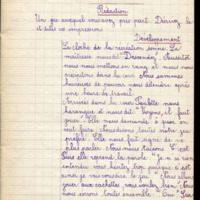 Rédaction
Un jeu auquel vous avez pris part. Décrivez-le
et dites vos impressions.
Développement
La cloche de la récréation sonne. La
maîtresse nous dit " Descendez". Aussitôt
nous nous mettons en rang et nous nous
précipitons dans la cour. Nous sommes
heureuses de pouvoir nous détendre après
une heure de travail.
Arrivées dans la cour Paulette nous
harangue et nous dit "Voyons, il faut
jouer". Elle nous demande à quoi
faut faire, choisissons toutes notre jeu
préféré. Elle nous fait signe de ne
plus parler. Nous nous taisons.
Puis elle reprend la parole. "Je n'ai rien
entendu vous hurlez, bon puisque c'est
moi je vous conseille le jeu". Nous allons
jouer aux cachettes vous voulez bien". Nous
nous crions toutes ensemble "Oui"